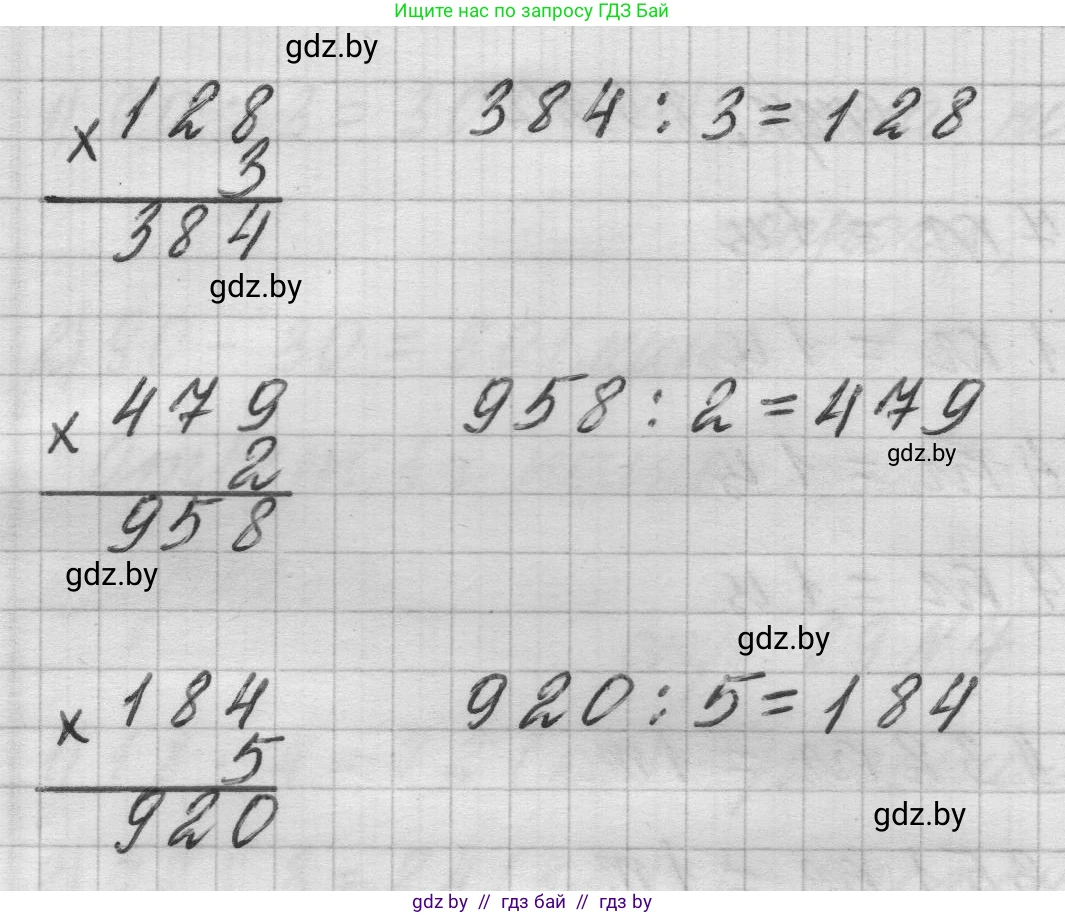 Ищите нас по запросу ГДЗ Бай
gdz.by
× 128
3
384
384 : 3 = 128
gdz.by
× 479
2
958
958 : 2 = 479
gdz.by
gdz.by
gdz.by
× 184
5
920
920 : 5 = 184
gdz.by
gdz by // гдз бай // гдз by